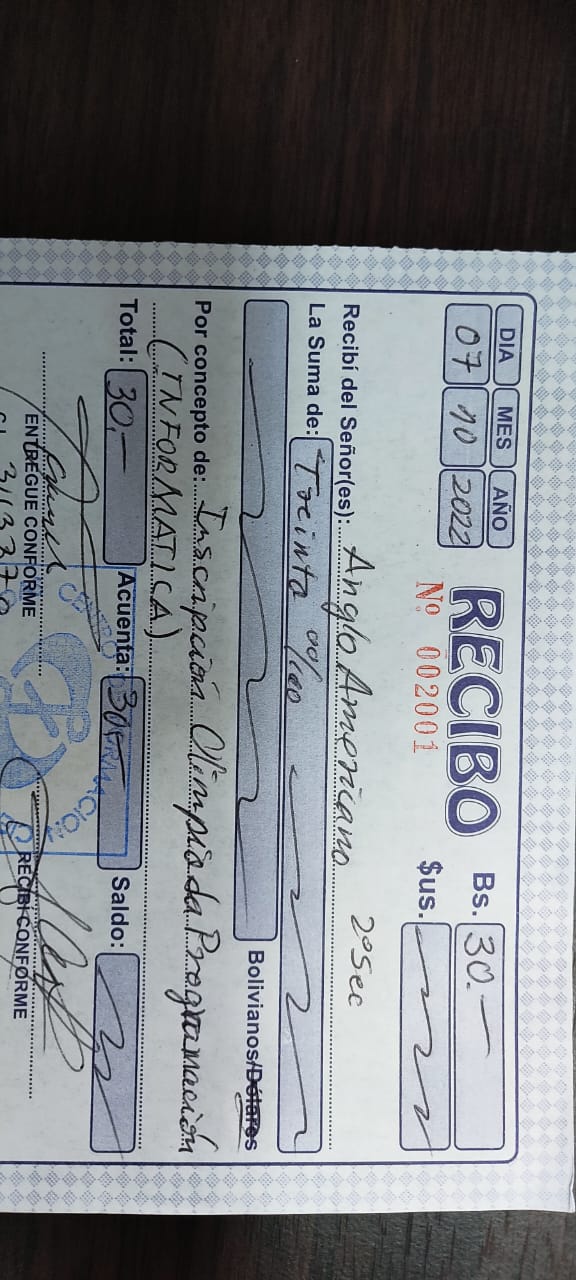 DIA MES AÑO
07 10 2022
RECIBO
Nº 002001
Bs. 30.-
$us.
Recibí del Señor(es): Anglo Americano 2º Sec
La Suma de: Treinta 00/00
Bolivianos/Dólares
Por concepto de: Inscripción Olimpiada Programación
(INFORMATICA)
Total: 30.- Acuenta: 30.- Saldo:
ENTREGUE CONFORME
RECIBI CONFORME